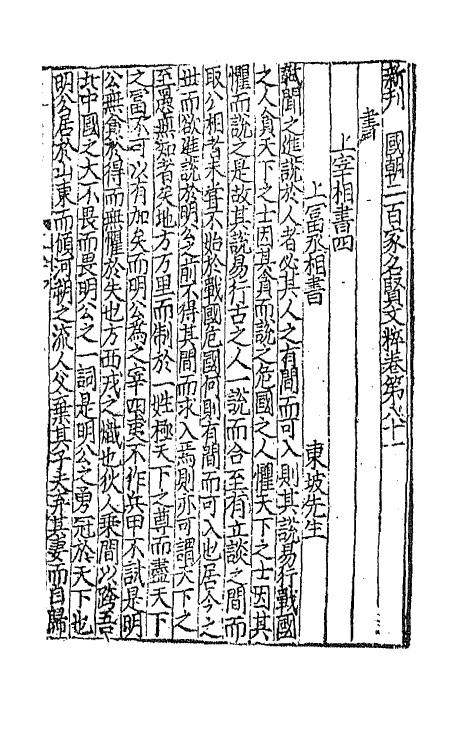 新刊 國朝二百家名賢文粹卷第八十一
書
上宰相書四
上富丞相書 東坡先生
軾聞之進說於人者必其人之有間而可入則其說易行戰國
之人貪天下之士因其貪而說之危國之人懼天下之士因其
懼而說之是故其說易行古之人一說而合至有立談之間而
取公相者未嘗不始於戰國危國何則有間而可入也居今之
世而欲進說於明公之前不得其間而求入焉則亦可謂天下之
至愚無知者矣地方万里而制於一姓極天下之尊而盡天下
之富不可以有加矣而明公爲之宰四夷不作兵甲不試是明
公無貪於得而無懼於失也方西戎之熾也狄人乘間以跨吾
北中國之大不畏而畏明公之一詞是明公之勇冠於天下也
明公居於山東而傾河朔之流人父棄其子夫弃其妻而自歸